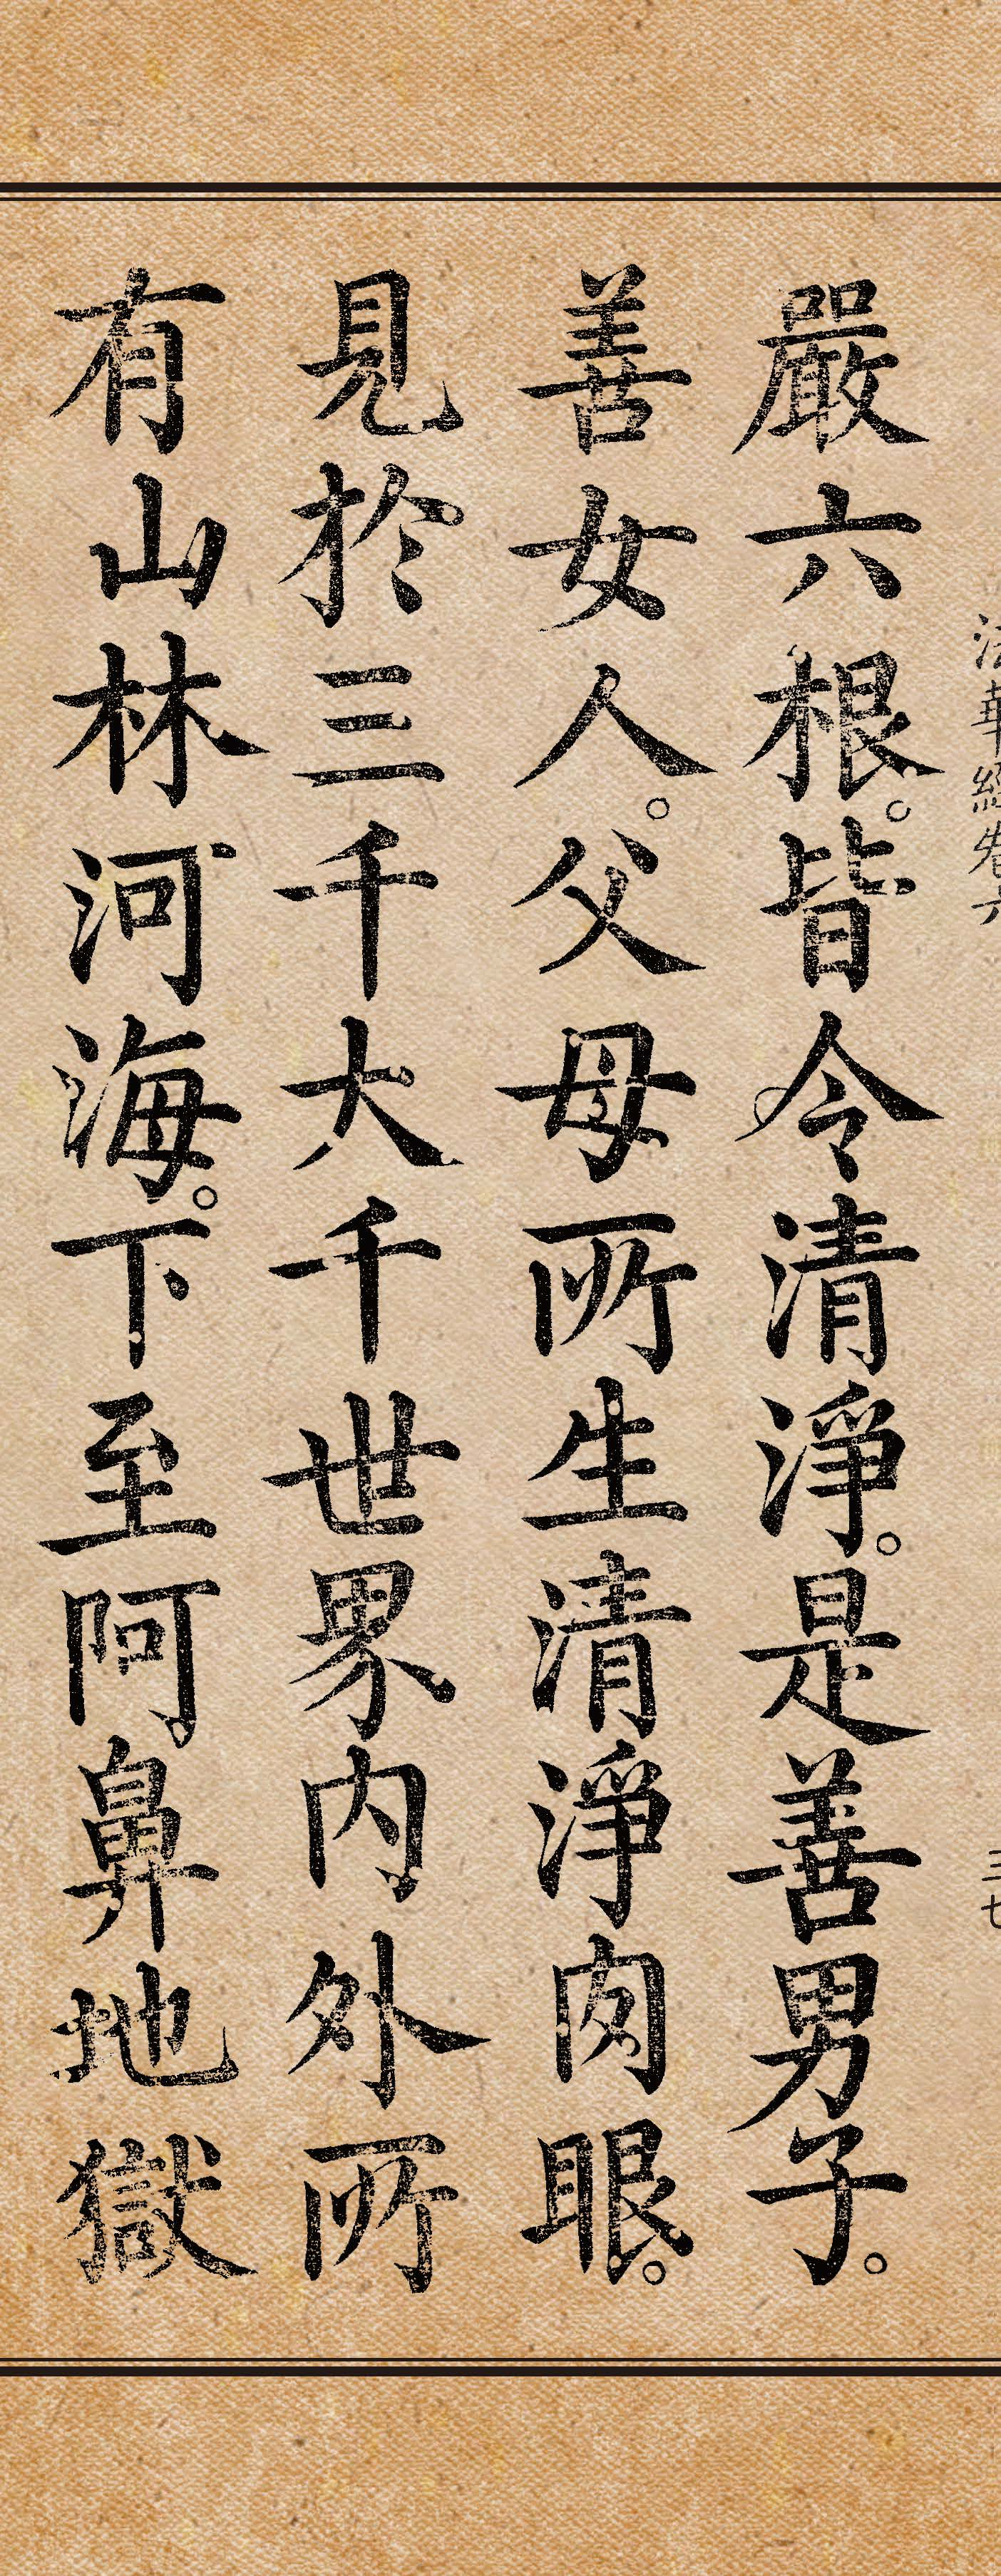 法華經卷六
三七
嚴六根。皆令清淨。是善男子。
善女人。父母所生清淨肉眼。
見於三千大千世界內外所
有山林河海。下至阿鼻地獄